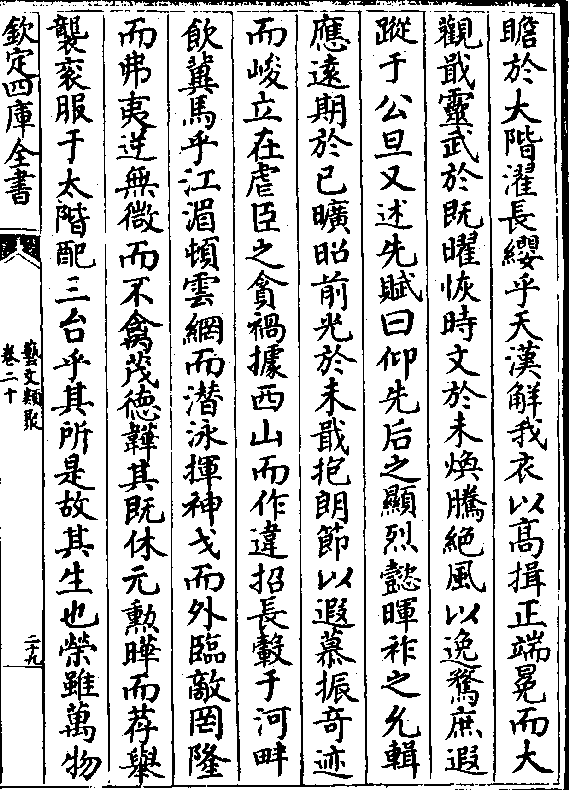 瞻於大階濯長纓乎天漢解我衣以高揖正端冕而大
觀戢靈武於既曜恢時文於未煥騰絕風以逸騖庶遐
蹤于公旦又述先賦曰仰先后之顯烈懿暉祚之允輯
應遠期於已曠昭前光於未戢抱朗節以遐慕振奇迹
而峻立在虐臣之貪禍據西山而作違招長轂于河畔
飲冀馬乎江湄頓雲網而潛泳揮神戈而外臨敵罔隆
而弗夷逆無微而不禽茂德韡其既休元勲曄而荐舉
襲衮服于太階配三台乎其所是故其生也榮雖萬物
欽定四庫全書
藝文類聚
卷二十
二十九